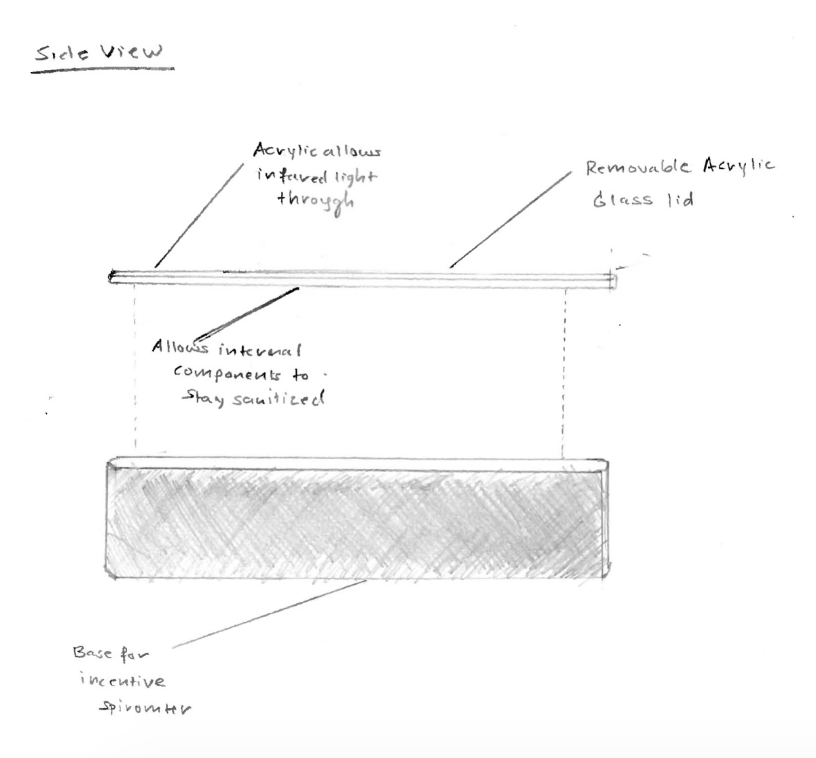 Side View
Acrylic allows
infared light
through
Removable Acrylic
Glass lid
Allows internal
components to
stay sanitized
Base for
incentive
spiromter